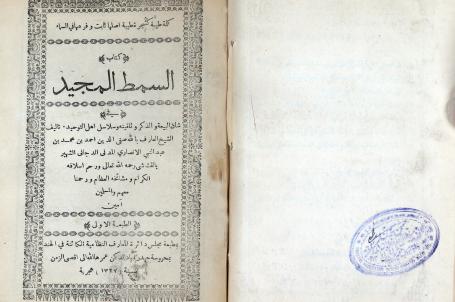 كلمة طيبة كشجرة طيبة اصلها ثابت و فرعها في السماء
كتاب
السمط المجيد
في
شان البيعة و الذكر و تلقينه و سلاسل اهل التوحيد تاليف
الشيخ العارف بالله صفي الدين احمد بن محمد بن
عبد النبي الانصاري المدني الدجاني الشهير
بالقشاشي رحمه الله تعالى ورحم اسلافه
الكرام و مشائخه العظام و رحمنا
معهم والمسلمين
آمين
الطبعة الاولى
بمطبعة مجلس دائرة المعارف النظامية الكائنة في الهند
بمحروسة حيدرآباد الدكن عمرها الله الى اقصى الزمن
سنة (١٣٢٧) هجرية